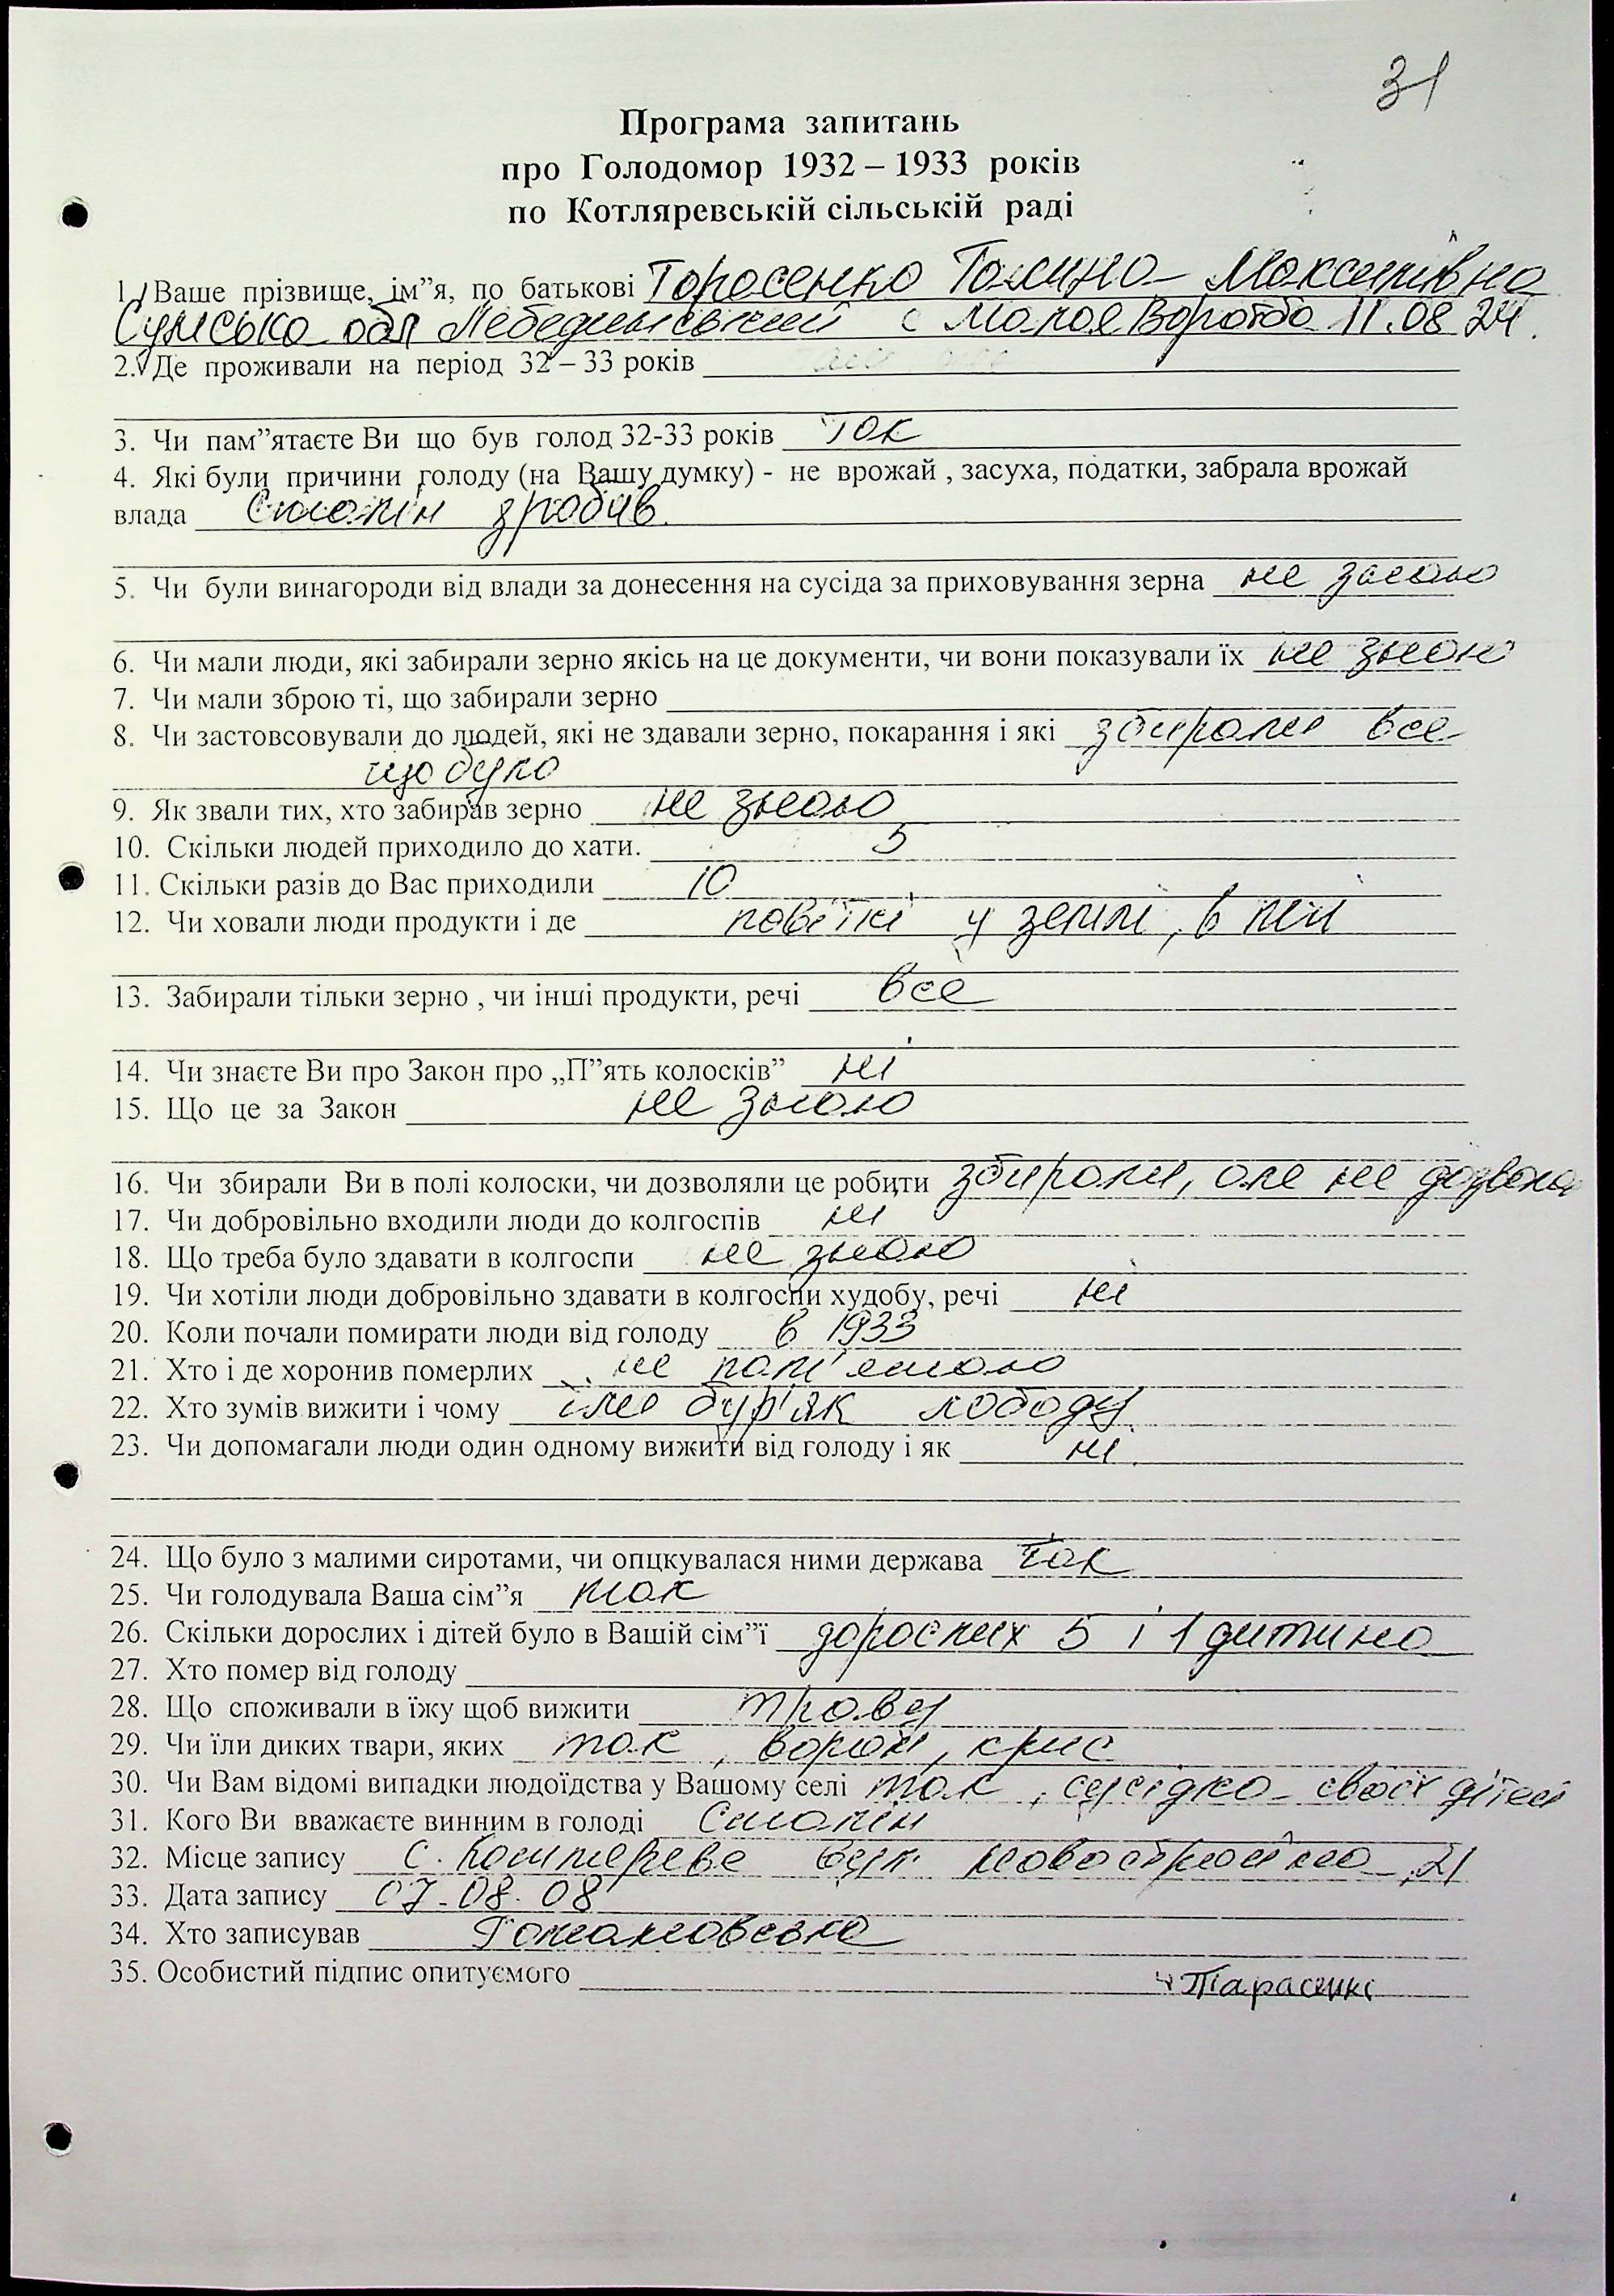 31
Програма запитань
про Голодомор 1932 – 1933 років
по Котляревській сільській раді
1. Ваше прізвище, ім"я, по батькові Тарасенко Галина Максимівна
Сумська обл Лебединський с Малая Ворожба 11.08 24.
2. Де проживали на період 32 – 33 років
3. Чи пам"ятаєте Ви що був голод 32-33 років Так
4. Які були причини голоду (на Вашу думку) - не врожай , засуха, податки, забрала врожай
влада Сталін зробив.
5. Чи були винагороди від влади за донесення на сусіда за приховування зерна не знаю
6. Чи мали люди, які забирали зерно якісь на це документи, чи вони показували їх не знаю
7. Чи мали зброю ті, що забирали зерно
8. Чи застовсовували до людей, які не здавали зерно, покарання і які збирали все
що було
9. Як звали тих, хто забирав зерно не знаю
10. Скільки людей приходило до хати. 5
11. Скільки разів до Вас приходили 10
12. Чи ховали люди продукти і де у землі, в печі
13. Забирали тільки зерно , чи інші продукти, речі все
14. Чи знаєте Ви про Закон про „П"ять колосків" ні
15. Що це за Закон не знаю
16. Чи збирали Ви в полі колоски, чи дозволяли це робити збирали, але не дозволя
17. Чи добровільно входили люди до колгоспів ні
18. Що треба було здавати в колгоспи не знаю
19. Чи хотіли люди добровільно здавати в колгоспи худобу, речі ні
20. Коли почали помирати люди від голоду в 1933
21. Хто і де хоронив померлих не пам'ятаю
22. Хто зумів вижити і чому їли бур'як лободу.
23. Чи допомагали люди один одному вижити від голоду і як ні.
24. Що було з малими сиротами, чи опцкувалася ними держава так
25. Чи голодувала Ваша сім"я так
26. Скільки дорослих і дітей було в Вашій сім"ї дорослих 5 і 1 дитина
27. Хто помер від голоду
28. Що споживали в їжу щоб вижити траву
29. Чи їли диких твари, яких так, ворон, крис
30. Чи Вам відомі випадки людоїдства у Вашому селі так, сусідка своїх дітей
31. Кого Ви вважаєте винним в голоді Сталін
32. Місце запису с. вул. 21
33. Дата запису 07.08.08
34. Хто записував
35. Особистий підпис опитуємого Тарасенко